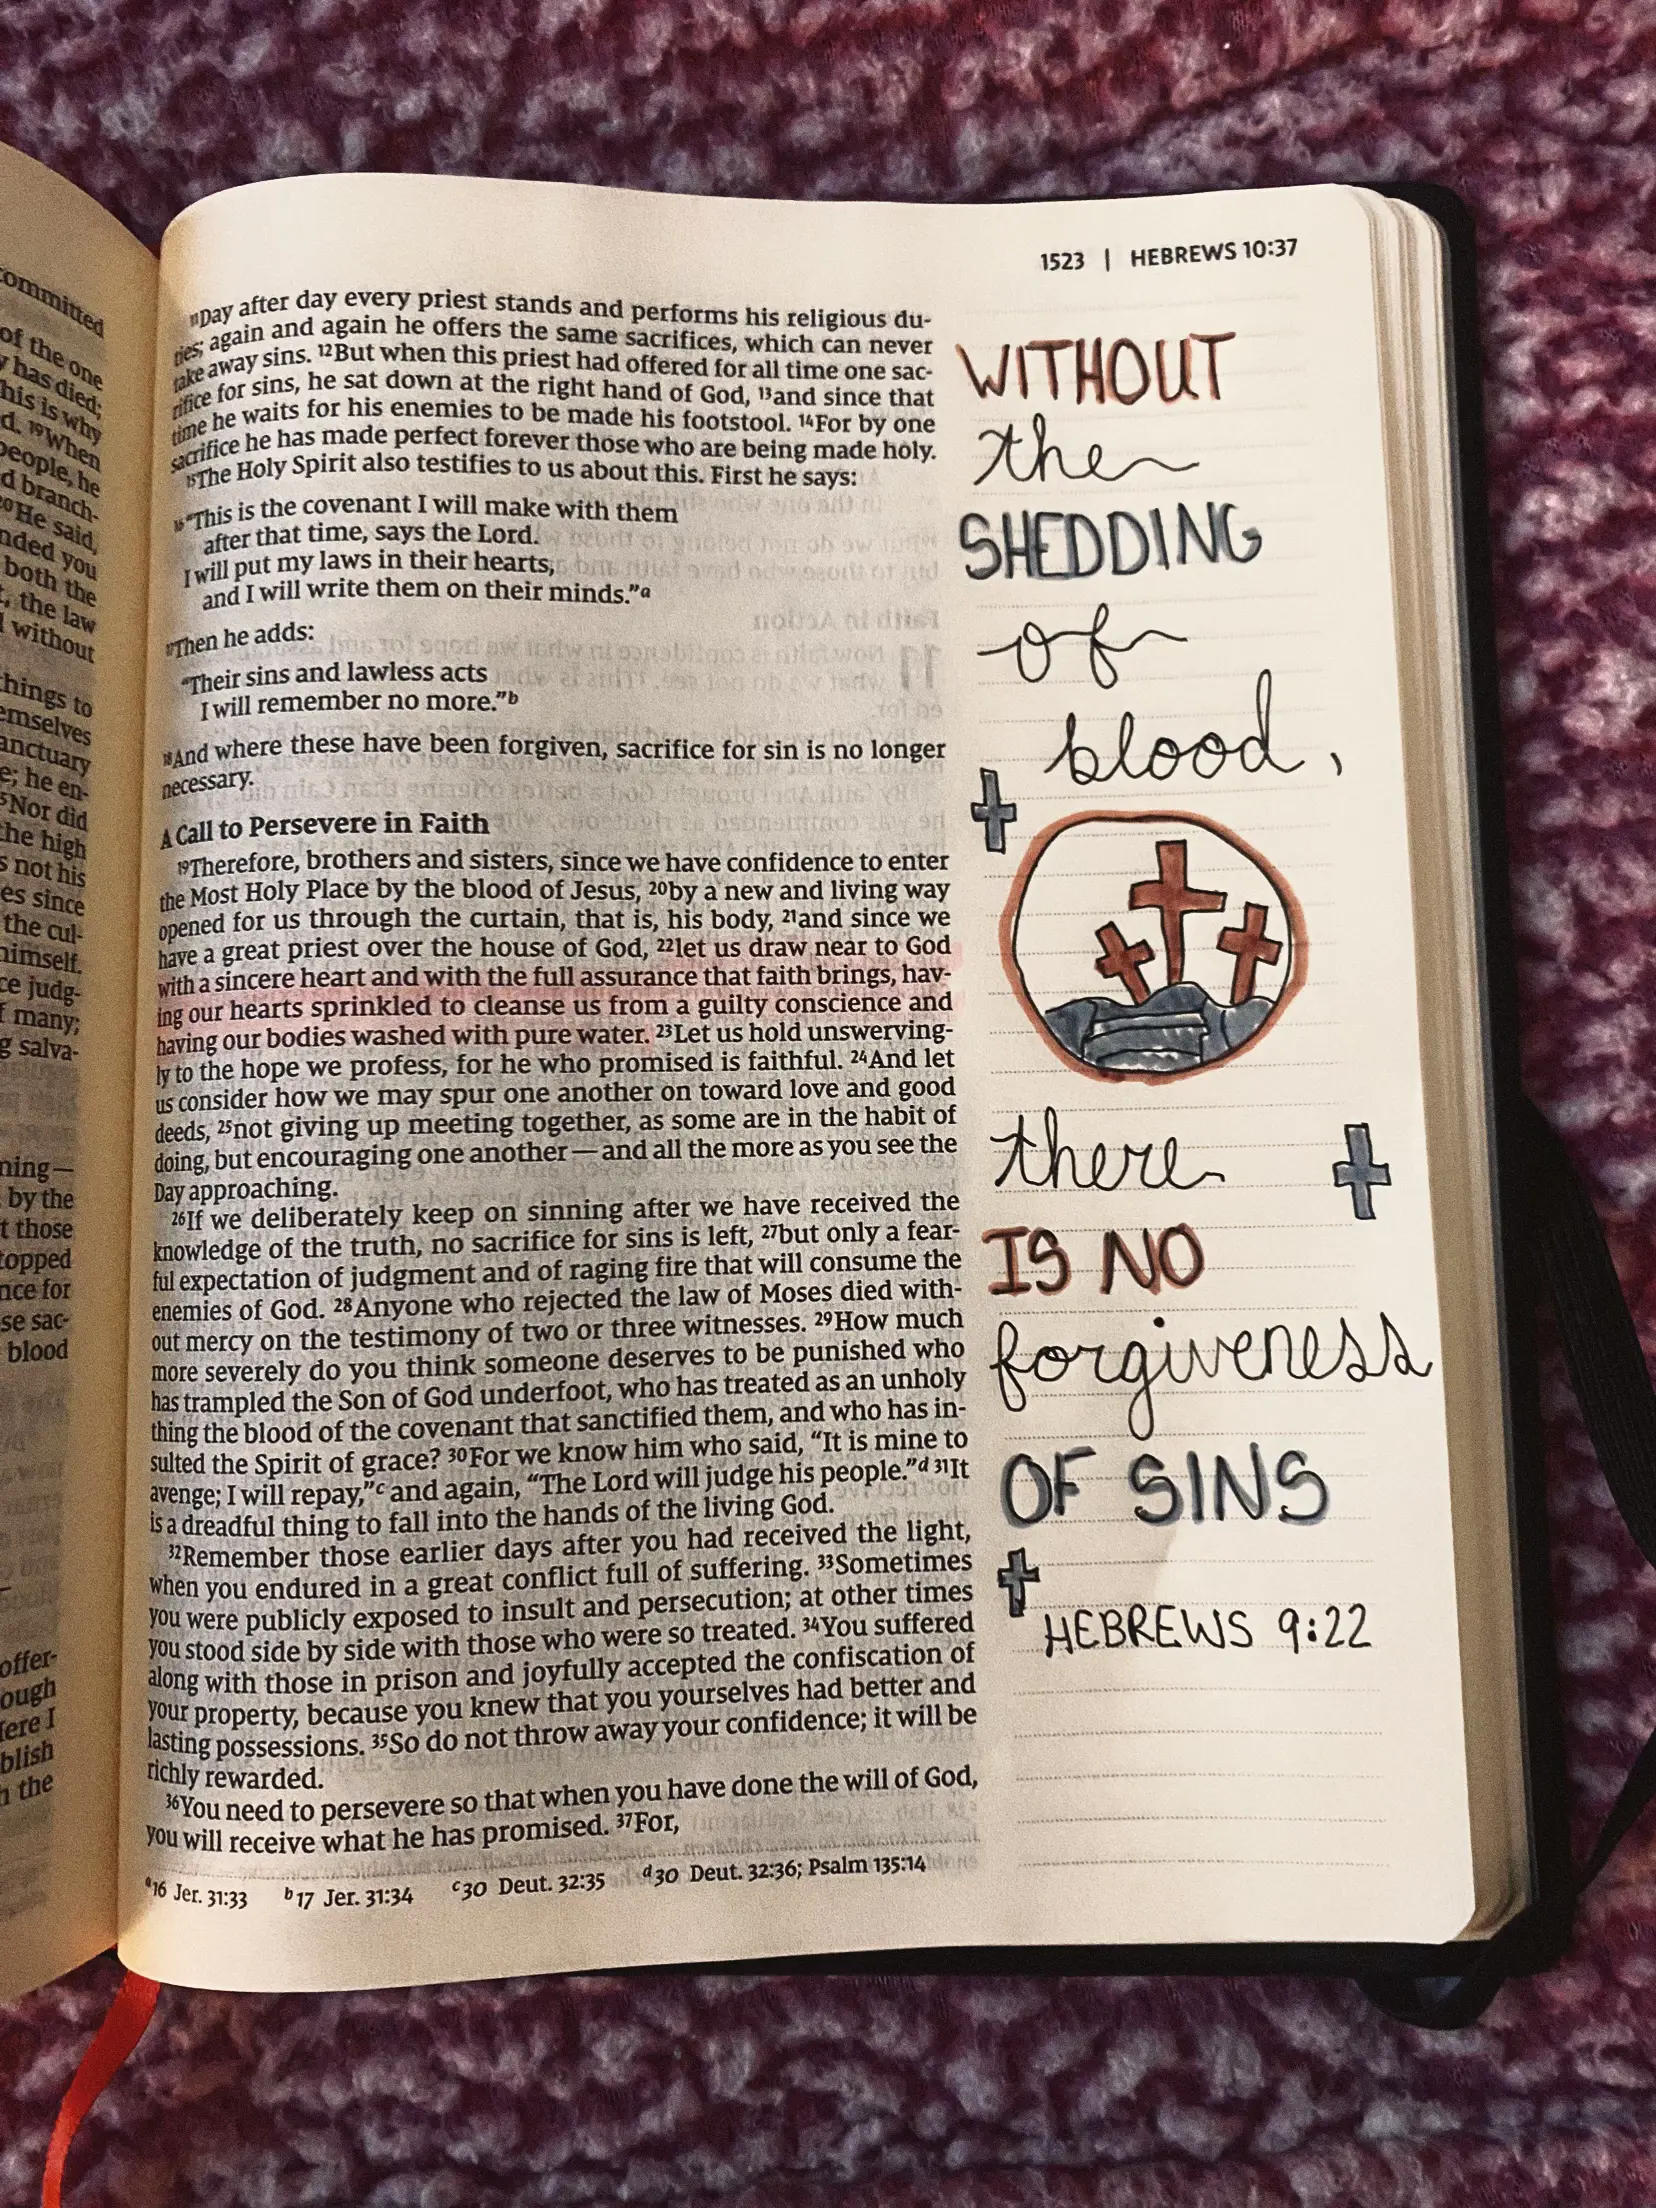 ommitted
of the one
y has died;
his is why
d. 19When
people, he
d branch-
20He said,
nded you
both the
t, the law
l without
hings to
emselves
anctuary
e; he en-
5Nor did
the high
s not his
es since
the cul-
himself.
ce judg-
f many;
g salva-
ning—
by the
t those
topped
nce for
se sac-
blood
offer-
ough
Here I
blish
n the
1523 | HEBREWS 10:37
11Day after day every priest stands and performs his religious du-
ties; again and again he offers the same sacrifices, which can never
take away sins. 12But when this priest had offered for all time one sac-
rifice for sins, he sat down at the right hand of God, 13and since that
time he waits for his enemies to be made his footstool. 14For by one
sacrifice he has made perfect forever those who are being made holy.
15The Holy Spirit also testifies to us about this. First he says:
16“This is the covenant I will make with them
after that time, says the Lord.
I will put my laws in their hearts,
and I will write them on their minds.”a
17Then he adds:
“Their sins and lawless acts
I will remember no more.”b
18And where these have been forgiven, sacrifice for sin is no longer
necessary.
A Call to Persevere in Faith
19Therefore, brothers and sisters, since we have confidence to enter
the Most Holy Place by the blood of Jesus, 20by a new and living way
opened for us through the curtain, that is, his body, 21and since we
have a great priest over the house of God, 22let us draw near to God
with a sincere heart and with the full assurance that faith brings, hav-
ing our hearts sprinkled to cleanse us from a guilty conscience and
having our bodies washed with pure water. 23Let us hold unswerving-
ly to the hope we profess, for he who promised is faithful. 24And let
us consider how we may spur one another on toward love and good
deeds, 25not giving up meeting together, as some are in the habit of
doing, but encouraging one another—and all the more as you see the
Day approaching.
26If we deliberately keep on sinning after we have received the
knowledge of the truth, no sacrifice for sins is left, 27but only a fear-
ful expectation of judgment and of raging fire that will consume the
enemies of God. 28Anyone who rejected the law of Moses died with-
out mercy on the testimony of two or three witnesses. 29How much
more severely do you think someone deserves to be punished who
has trampled the Son of God underfoot, who has treated as an unholy
thing the blood of the covenant that sanctified them, and who has in-
sulted the Spirit of grace? 30For we know him who said, “It is mine to
avenge; I will repay,”c and again, “The Lord will judge his people.”d 31It
is a dreadful thing to fall into the hands of the living God.
32Remember those earlier days after you had received the light,
when you endured in a great conflict full of suffering. 33Sometimes
you were publicly exposed to insult and persecution; at other times
you stood side by side with those who were so treated. 34You suffered
along with those in prison and joyfully accepted the confiscation of
your property, because you knew that you yourselves had better and
lasting possessions. 35So do not throw away your confidence; it will be
richly rewarded.
36You need to persevere so that when you have done the will of God,
you will receive what he has promised. 37For,
a16 Jer. 31:33 b17 Jer. 31:34 c30 Deut. 32:35 d30 Deut. 32:36; Psalm 135:14
WITHOUT
the
SHEDDING
of
blood,
there
IS NO
forgiveness
OF SINS
HEBREWS 9:22